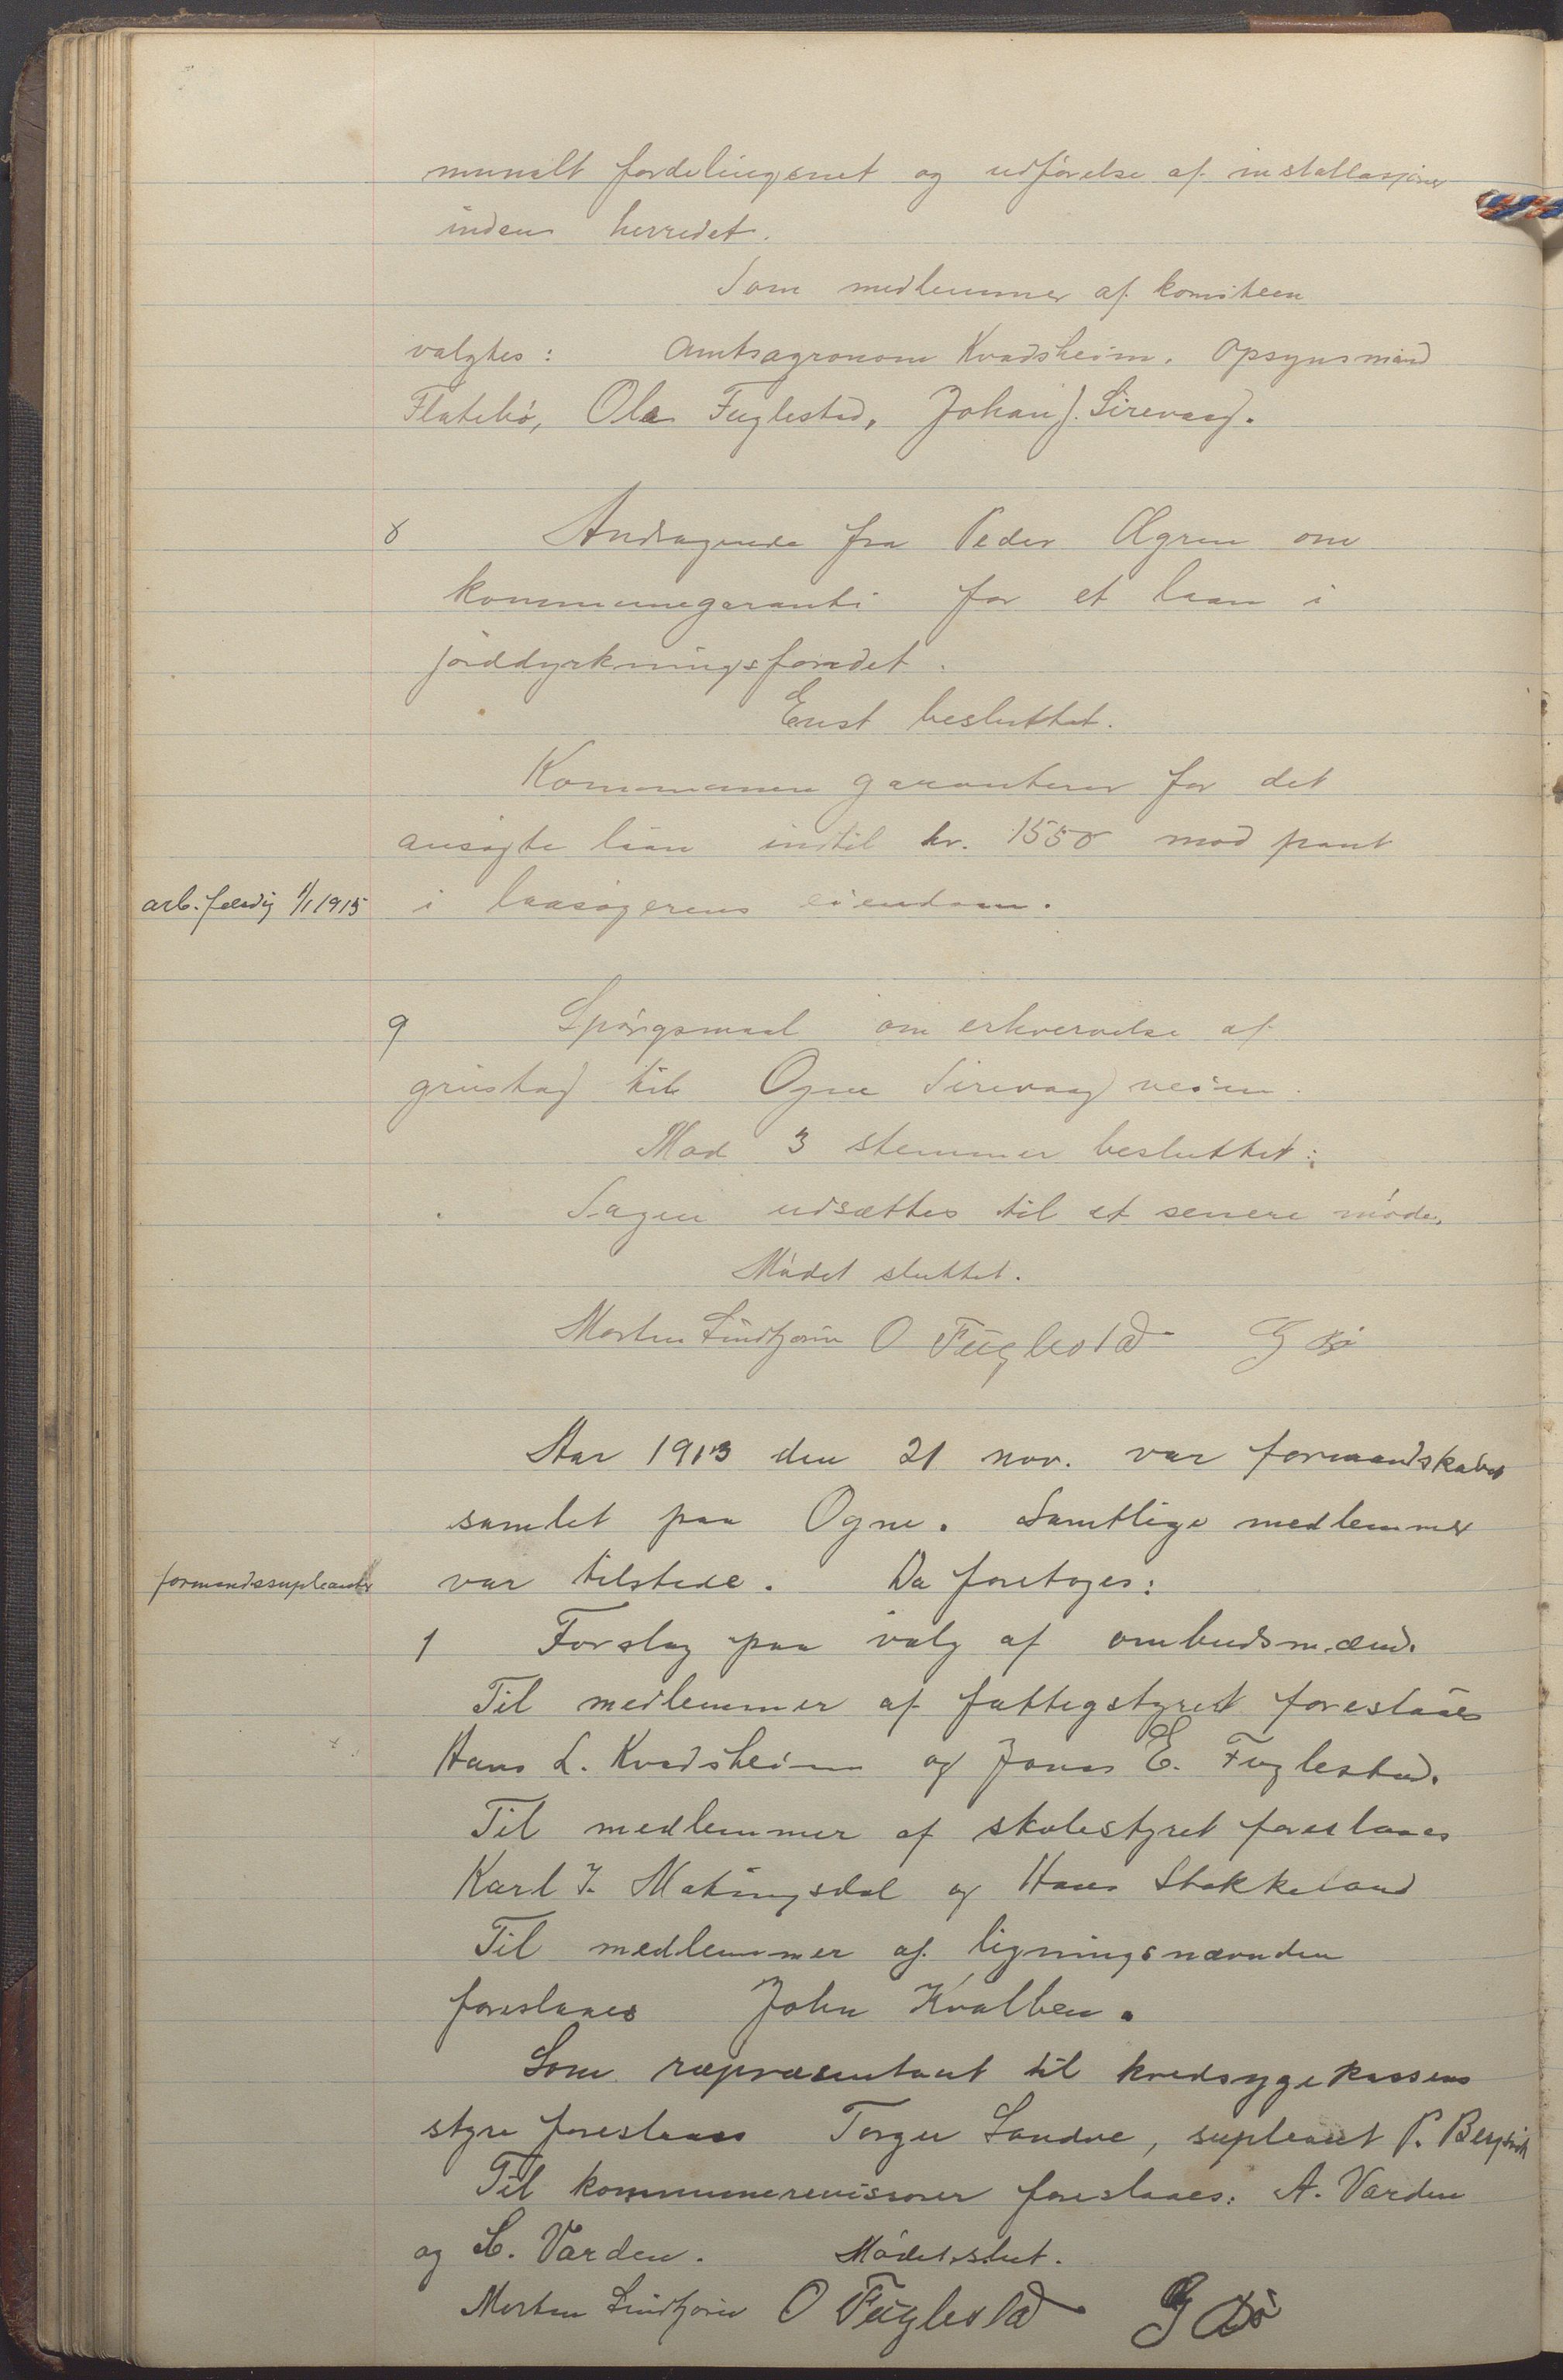 munalt fordelingsnet og udførelse af installasjoner
inden herredet.
Som medlemmer af komiteen
valgtes: Amtsagronom Kvadsheim, Opsynsmand
Flatebø, Ola Fuglestad, Johan J. Sirevaag.
8 Andragende fra Peder Ægren om
kommunegaranti for et laan i
jorddyrkningsfondet.
Enst besluttet.
Kommunen garanterer for det
ansøgte laan indtil kr. 1550 mod pant
arb. færdig 1/1 1915
i laasøgerens eiendom.
9 Spørgsmaal om erhvervelse af
grustag til Ogne Sirevaag veien.
Mod 3 stemmer besluttet:
Sagen udsættes til et senere møde.
Mødet sluttet.
Morten Lindtjørn O Fuglestad G Bø
Aar 1913 den 21 nov. var formandskabet
samlet paa Ogne. Samtlige medlemmer
formandssupleanter
var tilstede. Da foretoges:
1 Forslag paa valg af ombudsmænd.
Til medlemmer af fattigstyret foreslaaes
Hans L. Kvadsheim og Jonas E. Fuglestad.
Til medlemmer af skolestyret foreslaaes
Karl I. Matingsdal og Hans Stokkeland
Til medlemmer af ligningsnævnden
foreslaaes John Kvalben.
Som repræsentant til kredssygekassens
styre foreslaaes Torger Sandve, supleant P.
Til kommunerevisorer foreslaaes: A. Varden
og L. Varden. Mødet slut.
Morten Lindtjørn O Fuglestad G Bø